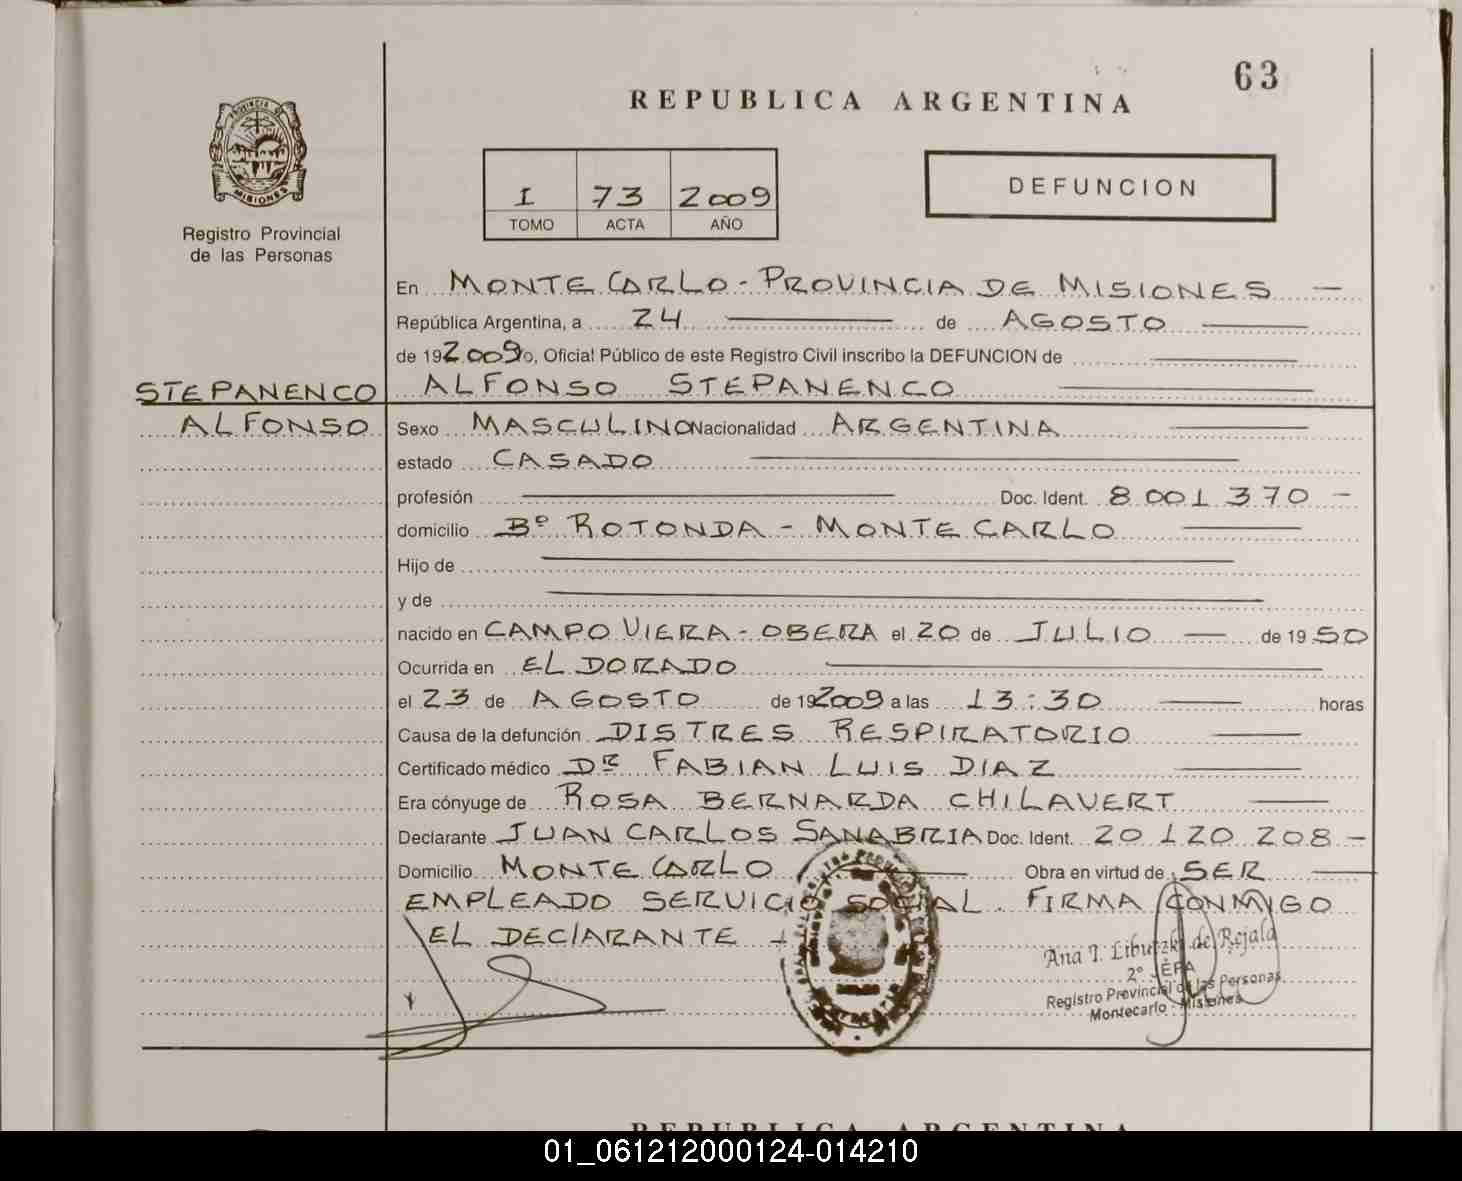 63
REPUBLICA ARGENTINA
PROVINCIA DE
MISIONES
I 73 2009
TOMO ACTA AÑO
DEFUNCION
Registro Provincial
de las Personas
En MONTE CARLO - PROVINCIA DE MISIONES —
República Argentina, a 24 — de AGOSTO —
de 192009o, Oficial Público de este Registro Civil inscribo la DEFUNCION de —
STEPANENCO ALFONSO STEPANENCO —
ALFONSO Sexo MASCULINO Nacionalidad ARGENTINA —
estado CASADO —
profesión — Doc. Ident. 8 001 370 -
domicilio Bº ROTONDA - MONTE CARLO —
Hijo de —
y de —
nacido en CAMPO VIERA - OBERA el 20 de JULIO — de 1950
Ocurrida en EL DORADO —
el 23 de AGOSTO de 192009 a las 13:30 — horas
Causa de la defunción DISTRES RESPIRATORIO —
Certificado médico Dr FABIAN LUIS DIAZ —
Era cónyuge de ROSA BERNARDA CHILAVERT —
Declarante JUAN CARLOS SANABRIA Doc. Ident. 20 120 208 -
Domicilio MONTE CARLO — Obra en virtud de SER —
EMPLEADO SERVICIO SOCIAL. FIRMA CONMIGO
EL DECLARANTE -
Ana I. de Rejala
2º
Registro Provincial de las Personas
Montecarlo - Misiones
REPUBLICA ARGENTINA
01_061212000124-014210